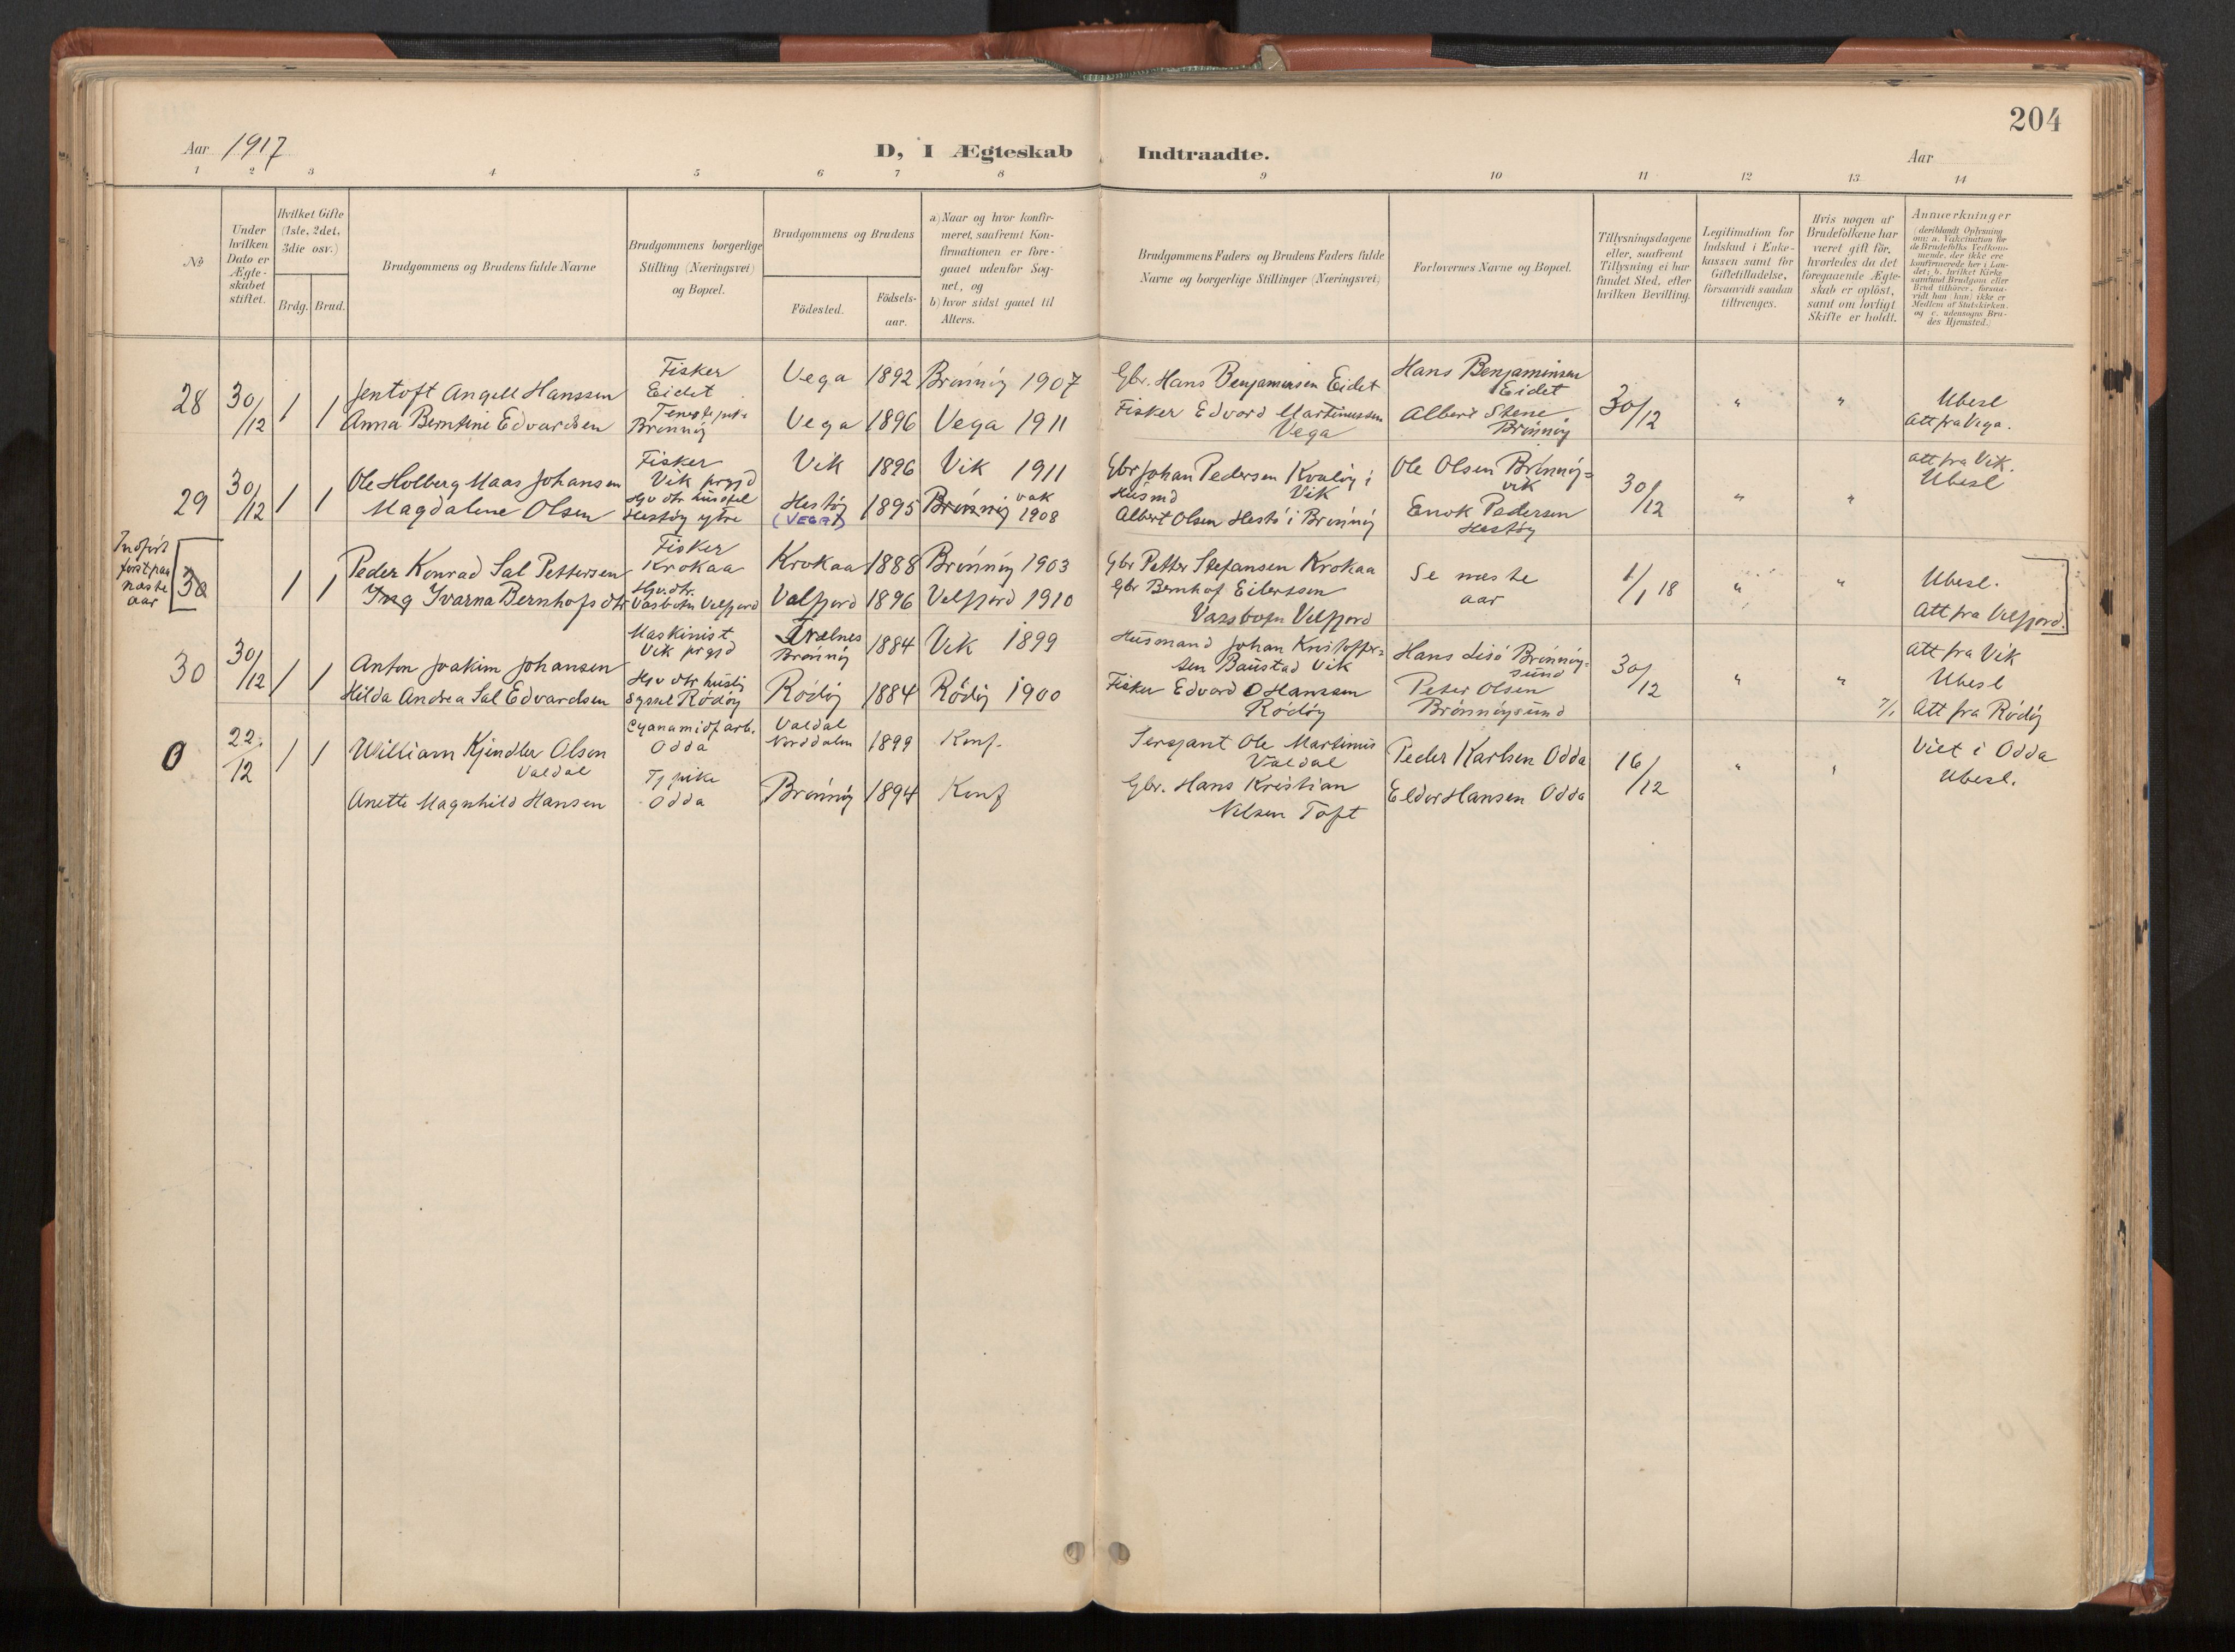 204
Aar 1917
D, I Ægteskab Indtraadte.
Aar
1 2 3 4 5 6 7 8 9 10 11 12 13 14
No
Under hvilken Dato er Ægte-skabet stiftet.
Hvilket Gifte (1ste, 2det, 3die osv.)
Brdg. Brud.
Brudgommens og Brudens fulde Navne
Brudgommens borgerlige Stilling (Næringsvei) og Bopæl.
Brudgommens og Brudens
Födested.
Födsels-aar.
a) Naar og hvor konfir-meret, saafremt Kon-firmationen er fore-gaaet udenfor Sog-net, og
b) hvor sidst gaaet til Alters.
Brudgommens Faders og Brudens Faders fulde Navne og borgerlige Stillinger (Næringsvei)
Forlovernes Navne og Bopæl.
Tillysningsdagene eller, saafremt Tillysning ei har fundet Sted, efter hvilken Bevilling.
Legitimation for Indskud i Enke-kassen samt for Giftetilladelse, forsaavidt saadan tiltrænges.
Hvis nogen af Brudefolkene har været gift för, hvorledes da det foregaaende Ægte-skab er oplöst, samt om lovligt Skifte er holdt.
Anmerkninger (deriblandt Oplysning om: a. Vakcination for de Brudefolks Vedkom-mende, der ikke ere konfirmerede her i Lan-det; b. hvilket Kirke-samfund Brudgom eller Brud tilhörer, forsaa-vidt han (hun) ikke er Medlem af Statskirken, og c. udensogns Bru-des Hjemsted.)
28 30/12 1 1
Jentoft Angell Hanssen
Fisker
Eidet
Vega 1892 Brönnöy 1907
Gbr. Hans Benjaminsen Eidet
Hans Benjaminsen
Eidet
30/12 " " Ubesl
Anna Berntine Edvardsen
Brönnöy
Vega 1896 Vega 1911
Fisker Edvard Martinussen
Vega
Albert Stene
Brönnöy
Att fra Vega.
29 30/12 1 1
Ole Holberg Maas Johansen
Fisker
Vik prgjd
Vik 1896 Vik 1911
Gbr Johan Pedersen Kvalöy i
Vik
Ole Olsen Brönnöy=
vik
30/12 " "
att fra Vik.
Ubesl
Magdalene Olsen
Gbr dtr husstel
Hestöy ytre
Hestöy
(VEGA)
1895 Brönnöy vak
1908
Husmd
Albert Olsen Hestö i Brönnöy
Enok Pedersen
Hestöy
Indfört
först paa
næste
aar
30 1 1
Peder Konrad Sal Pettersen
Fisker
Krokaa
Krokaa 1888 Brönnöy 1903
Gbr Petter Stefansen Krokaa
Se næste
aar
1/1 18 " " Ubesl.
Ivarna Bernhofsdtr
Gbr. dtr.
Vasbotn Velfjord
Velfjord 1896 Velfjord 1910
Gbr Bernhof Eilertssen
Vassbotn Velfjord
Att fra Velfjord.
30 30/12 1 1
Anton Joakim Johansen
Maskinist
Vik prgjd
Trælnes
Brönnöy
1884 Vik 1899
Husmand Johan Kristoffer=
sen Baustad Vik
Hans Lisö Brönnöy=
sund
30/12 " "
att fra Vik
Ubesl
Hilda Andrea Sal Edvardsen
Gbr dtr huslig
syssel Rödöy
Rödöy 1884 Rödöy 1900
Fisker Edvard O Hanssen
Rödöy
Peter Olsen
Brönnöysund
7/1 Att fra Rödöy
0 22/12 1 1
William Kjendler Olsen
Valdal
Cyanamidfarb.
Odda
Valdal
Norddalen
1899 Konf.
Sersjant Ole Martinus
Valdal
Peder Karlsen Odda
16/12 " "
Viet i Odda
Ubesl.
Anette Magnhild Hansen
Tj pike
Odda
Brönnöy 1894 Konf
Gbr. Hans Kristian
Nilsen Toft
Eldor Hansen Odda